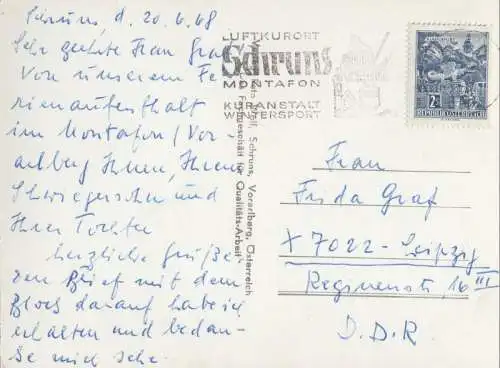 Schruns, d. 20.6.68
Sehr geehrte Frau Graf
Von unserem Fe
rienaufenthalt
im Montafon/Vor-
arlberg Ihnen, Ihrem
Schwiegersohn und
Ihrer Tochter
herzliche Grüße
den Brief mit dem
Block darauf habe ich
erhalten und bedan-
ke mich sehr
LUFTKURORT
Schruns
MONTAFON
KURANSTALT
WINTERSPORT
Schruns, Vorarlberg, Österreich
Fachgeschäft für "Qualitäts-Arbeit"
REPUBLIK ÖSTERREICH
Frau
Frida Graf
X 7022 - Leipzig
Reginenstr. 16 III
D.D.R.